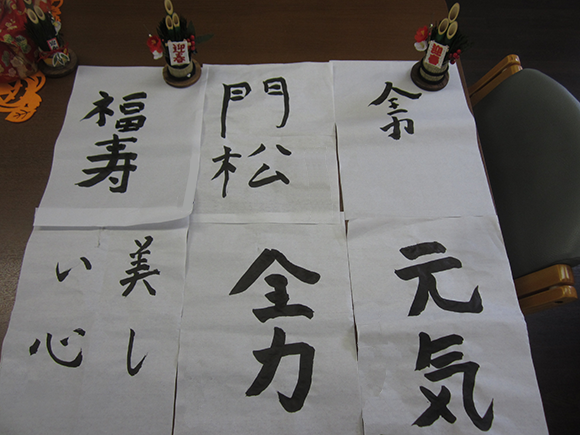 迎春
迎春
門松
福寿
元気
全力
美し
い心